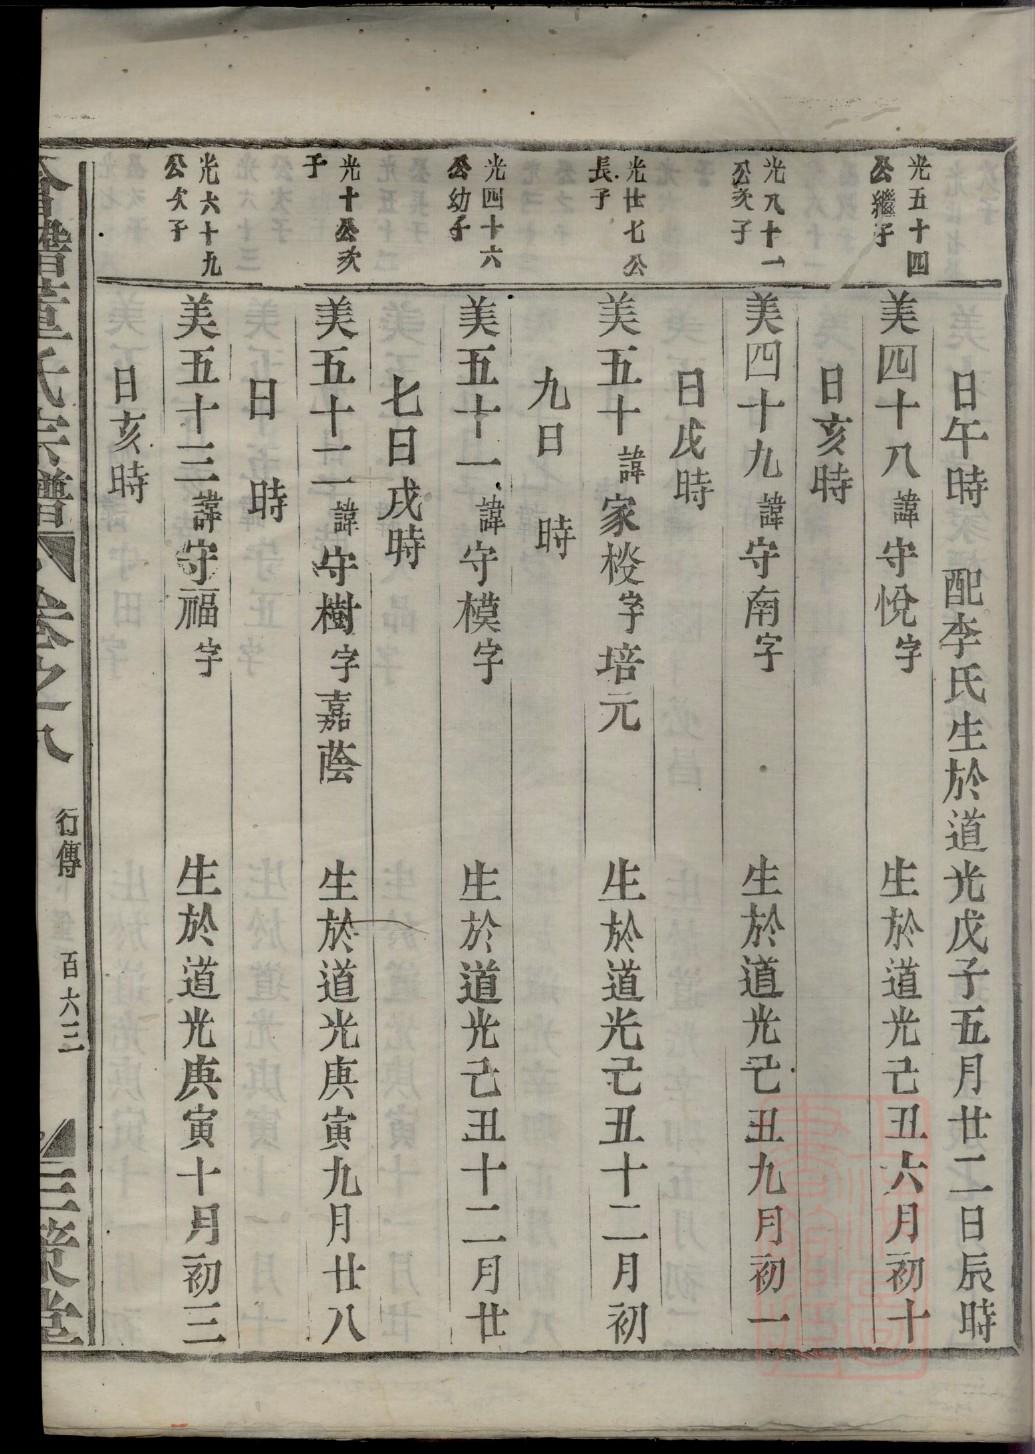 日午時　配李氏生於道光戊子五月廿二日辰時
光五十四
公繼子
美四十八諱守悅字　生於道光己丑六月初十
日亥時
光八十一
公次子
美四十九諱守南字　生於道光己丑九月初一
日戌時
光廿七公
長子
美五十諱家校字培元　生於道光己丑十二月初
九日　時
光四十六
公幼子
美五十一諱守模字　生於道光己丑十二月廿
七日戌時
光十公次
子
美五十二諱守樹字嘉蔭　生於道光庚寅九月廿八
日　時
光六十九
公次子
美五十三諱守福字　生於道光庚寅十月初三
日亥時
董氏宗譜　卷之八　行傳　百六三　三策堂